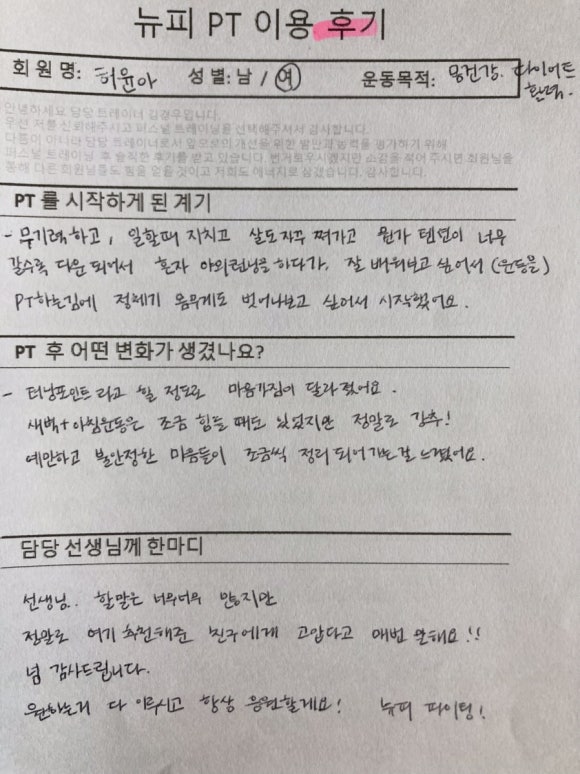 뉴피 PT 이용 후기
회 원 명: 허윤아 성 별: 남 / 여 운동목적: 몸건강. 다이어트
활력.
안녕하세요 담당 트레이너 김경우입니다.
우선 저를 신뢰해주시고 퍼스널 트레이닝을 선택해주셔서 감사합니다.
다름이 아니라 담당 트레이너로서 앞으로의 개선을 위한 발판과 능력을 평가하기 위해
퍼스널 트레이닝 후 솔직한 후기를 받고 있습니다. 번거로우시겠지만 소감을 적어 주시면 회원님을
통해 다른 회원님들도 힘을 얻을 것이고 저희도 에너지로 삼겠습니다. 감사합니다.
PT 를 시작하게 된 계기
- 무기력하고, 일할때 지치고 살도자꾸 쪄가고 뭔가 텐션이 너무
갈수록 다운되어서 혼자 야외런닝을 하다가, 잘 배워보고 싶어서 (운동을)
PT하는김에 정체기 몸무게도 벗어나보고 싶어서 시작했어요.
PT 후 어떤 변화가 생겼나요?
- 터닝포인트라고 할 정도로 마음가짐이 달라졌어요.
새벽+아침운동은 조금 힘들 때도 있었지만 정말로 강추!
예민하고 불안정한 마음들이 조금씩 정리되어가는걸 느꼈어요.
담당 선생님께 한마디
선생님.. 할말은 너무너무 많지만
정말로 여기 추천해준 친구에게 고맙다고 매번 말해요!!
넘 감사드립니다.
원하는거 다 이루시고 항상 응원할게요! 뉴피 파이팅!